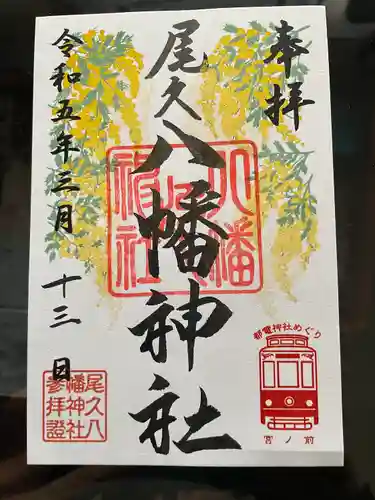 奉拝
尾久八幡神社
令和五年三月十三日
八幡
神社
都電神社めぐり
宮ノ前
尾久八
幡神社
参拝證